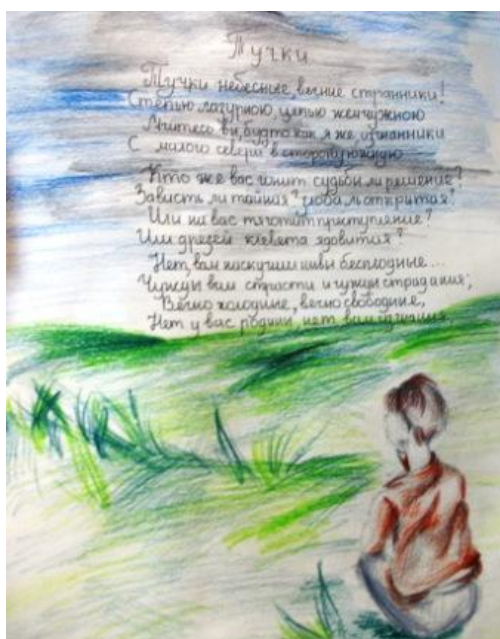 Тучки
Тучки небесные, вечные странники!
Степью лазурною, цепью жемчужною
Мчитесь вы, будто как я же, изгнанники
С милого севера в сторону южную
Кто же вас гонит: судьбы ли решение?
Зависть ли тайная? злоба ль открытая?
Или на вас тяготит преступление?
Или друзей клевета ядовитая?
Нет, вам наскучили нивы бесплодные...
Чужды вам страсти и чужды страдания;
Вечно холодные, вечно свободные,
Нет у вас родины, нет вам изгнания.